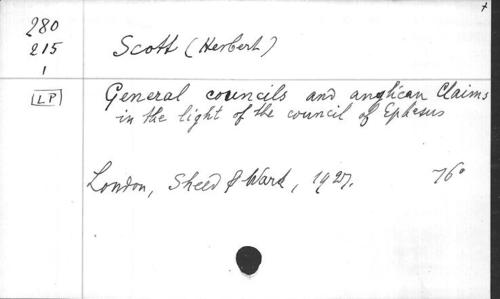 280
215
1
LP
Scott (Herbert)
General councils and anglican Claims
in the light of the council of Ephesus
London, Sheed & Ward, 1927. 76°